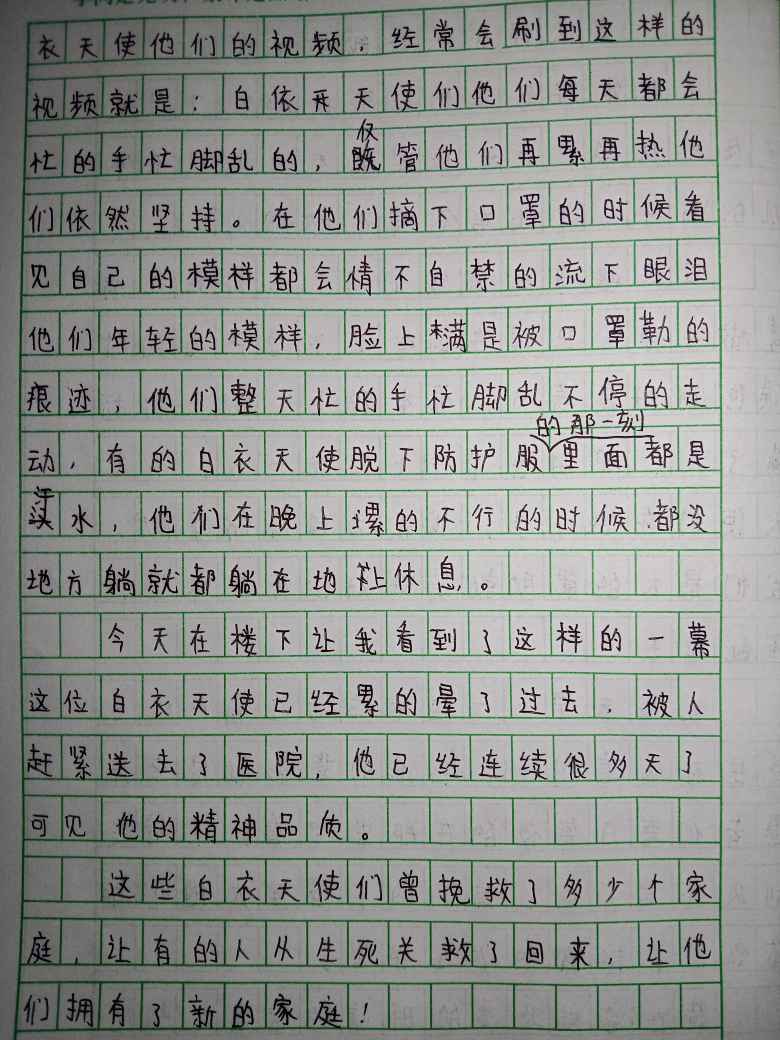 衣天使他们的视频，经常会刷到这样的
视频就是：白依天使们他们每天都会
忙的手忙脚乱的，仅管他们再累再热他
们依然坚持。在他们摘下口罩的时候看
见自己的模样都会情不自禁的流下眼泪
他们年轻的模样，脸上满是被口罩勒的
痕迹，他们整天忙的手忙脚乱不停的走
动，有的白衣天使脱下防护服的那一刻里面都是
汗水，他们在晚上累的不行的时候，都没
地方躺就都躺在地上休息。
今天在楼下让我看到了这样的一幕
这位白衣天使已经累的晕了过去，被人
赶紧送去了医院，他已经连续很多天了
可见他的精神品质。
这些白衣天使们曾挽救了多少个家
庭，让有的人从生死关救了回来，让他
们拥有了新的家庭！